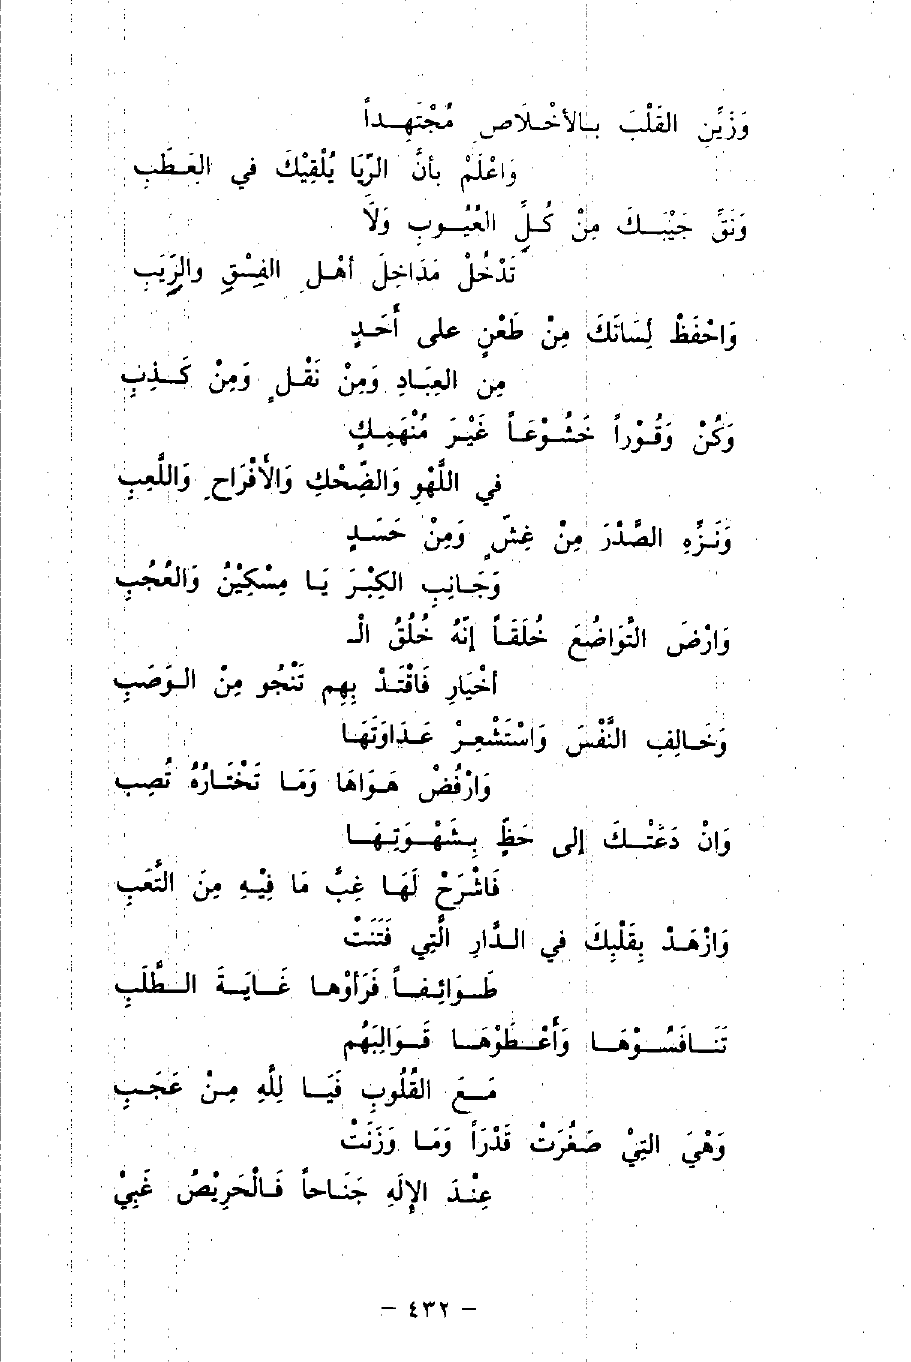 وَزَيِّنِ القَلْبَ بالأخْلَاصِ مُجْتَهِداً
وَاعْلَمْ بأنَّ الرِّيَا يُلْقِيْكَ في العَطَبِ
وَنَقِّ جَيْبَكَ مِنْ كُلِّ العُيُوبِ وَلَا
تَدْخُلْ مَدَاخِلَ أهْلِ الفِسْقِ والرِّيَبِ
وَاحْفَظْ لِسَانَكَ مِنْ طَعْنٍ على أَحَدٍ
مِن العِبَادِ وَمِنْ نَقْلٍ وَمِنْ كَذِبٍ
وَكُنْ وَقُوْراً خَشُوْعَاً غَيْرَ مُنْهَمِكٍ
في اللَّهْوِ وَالضِّحْكِ وَالأَفْرَاحِ وَاللَّعِبِ
وَنَزِّهِ الصَّدْرَ مِنْ غِشٍّ وَمِنْ حَسَدٍ
وَجَانِبِ الكِبْرَ يَا مِسْكِيْنُ وَالعُجُبِ
وَارْضَ التَّوَاضُعَ خُلَقَاً إنَّهُ خُلُقُ الْـ
أخْيَارِ فَاقْتَدْ بِهِم تَنْجُو مِنْ الوَصَبِ
وَخَالِفِ النَّفْسَ وَاسْتَشْعِرْ عَدَاوَتَهَا
وَارْفُضْ هَوَاهَا وَمَا تَخْتَارُهُ تُصِبِ
وَانْ دَعَتْكَ إلى حَظٍّ بِشَهْوَتِهَا
فَاشْرَحْ لَهَا غِبَّ مَا فِيْهِ مِنَ التَّعَبِ
وَازْهَدْ بِقَلْبِكَ في الدَّارِ الَّتِي فَتَنَتْ
طَوَائِفاً فَرَأوْها غَايَةَ الطَّلَبِ
تَنَافَسُوْهَا وَأَعْطَوْهَا قَوَالِبَهُم
مَعَ القُلُوبِ فَيَا لِلَّهِ مِنْ عَجَبِ
وَهْيَ التِيْ صَغُرَتْ قَدْرَاً وَمَا وَزَنَتْ
عِنْدَ الإلَهِ جَنَاحاً فَالْحَرِيْصُ غَبِيْ
- ٤٣٢ -